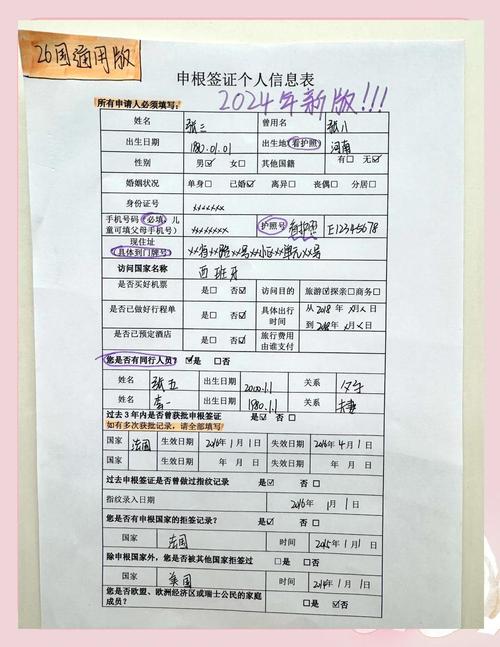 26国通用版
申根签证个人信息表
2024年新版!!!
所有申请人必须填写:
姓名 张三 曾用名 张八
出生日期 1980.01.01 出生地(看护照) 河南
性别 男☑ 女□ 其他国籍 有□ 无☑
婚姻状况 单身□ 已婚☑ 离异□ 丧偶□ 分居□
身份证号 xxxxxxx
手机号码(必填,儿童可填父母手机号) xxxxxxxx 护照号 看护照 E12345678
现住址(具体到门牌号) xx省xx路xx号xx小区xx单元xx号
访问国家名称 西班牙
是否买好机票 是□ 否☑ 访问目的 旅游☑探亲□商务□
是否已做好行程单 是□ 否☑ 具体出行时间 从2018年x月x日
到2018年x月x日
是否已预定酒店 是□ 否☑ 旅行费用由谁支付
您是否有同行人员? ☑是 □否
姓名 张五 出生日期 2000.1.1 关系 父子
姓名 李一 出生日期 1980.1.1 关系 夫妻
过去3年内是否曾获批申根签证 是☑ 否□
如有多次获批记录,请全部填写
国家 法国 生效日期 2016年1月1日 失效日期 2016年4月1日
国家 生效日期 年 月 日 失效日期 年 月 日
过去申根签证是否曾做过指纹记录 是☑ 否□
指纹录入日期 2016年1月1日
您是否有申根国家的拒签记录? 是☑ 否□
国家 法国 时间 2015年1月1日
除申根国家外,您是否被其他国家拒签过 □是 □否
国家 美国 时间 2014年1月1日
您是否欧盟、欧洲经济区或瑞士公民的家庭成员? □是 ☑否